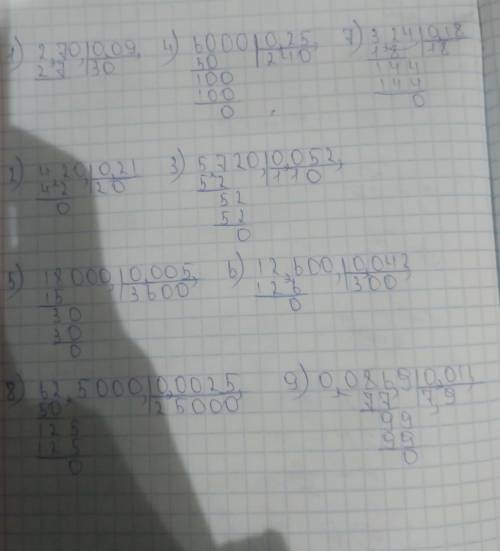 1) 2,70,|0,09,
27 30
0
4) 6000|0,25,
50 240
100
100
0
7) 3,24|0,18
18 18
144
144
0
2) 4,20,|0,21
42 20
0
3) 5,720,|0,052,
52 110
52
52
0
5) 18000,|0,005,
15 3600
30
30
0
6) 12,600,|0,042
126 300
0
8) 62,5000,|0,0025,
50 25000
125
125
0
9) 0,0869|0,011
77 7,9
99
99
0